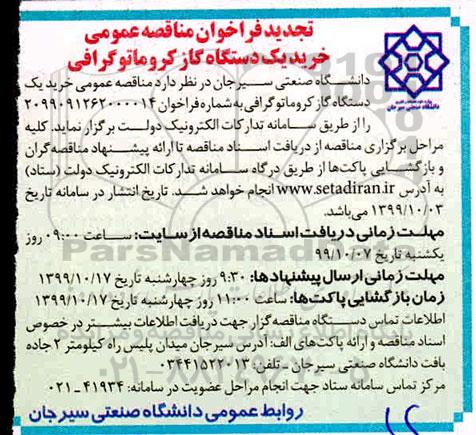 تجدید فراخوان مناقصه عمومی
خرید یک دستگاه گاز کروماتوگرافی
دانشگاه صنعتی سیرجان
دانشگاه صنعتی سیرجان در نظر دارد مناقصه عمومی خرید یک
دستگاه گاز کروماتوگرافی به شماره فراخوان ۲۰۹۹۰۹۱۲۶۲۰۰۰۰۱۴
را از طریق سامانه تدارکات الکترونیک دولت برگزار نماید. کلیه
مراحل برگزاری مناقصه از دریافت اسناد مناقصه تا ارائه پیشنهاد مناقصه‌گران
و بازگشایی پاکت‌ها از طریق درگاه سامانه تدارکات الکترونیک دولت (ستاد)
به آدرس www.setadiran.ir انجام خواهد شد. تاریخ انتشار در سامانه تاریخ
۱۳۹۹/۱۰/۰۳ می‌باشد.
مهلت زمانی دریافت اسناد مناقصه از سایت: ساعت ۰۹:۰۰ روز
یکشنبه تاریخ ۹۹/۱۰/۰۷
مهلت زمانی ارسال پیشنهادها: ۹:۳۰ روز چهارشنبه تاریخ ۱۳۹۹/۱۰/۱۷
زمان بازگشایی پاکت‌ها: ساعت ۱۱:۰۰ روز چهارشنبه تاریخ ۱۳۹۹/۱۰/۱۷
اطلاعات تماس دستگاه مناقصه گزار جهت دریافت اطلاعات بیشتر در خصوص
اسناد مناقصه و ارائه پاکت‌های الف: آدرس سیرجان میدان پلیس راه کیلومتر ۲ جاده
بافت دانشگاه صنعتی سیرجان - تلفن: ۰۳۴۴۱۵۲۲۰۱۳
مرکز تماس سامانه ستاد جهت انجام مراحل عضویت در سامانه: ۴۱۹۳۴ - ۰۲۱
روابط عمومی دانشگاه صنعتی سیرجان
ParsNamadData